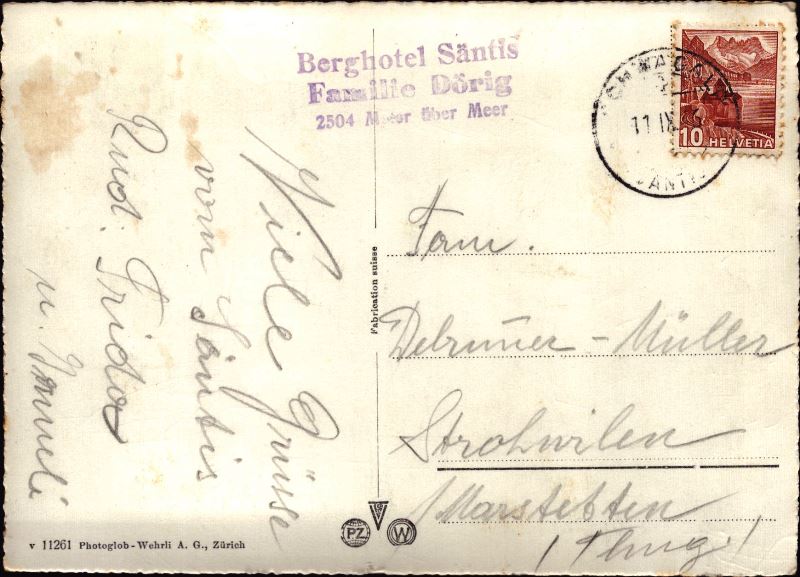 Berghotel Säntis
Familie Dörig
2504 Meter über Meer
SCHWÄGALP
11 IX
SÄNTIS
10 HELVETIA
Viele Grüsse
vom Säntis
Rud. Frida
u.
Fam.
Debrunner-Müller
Strohwilen
Marstetten
(Thug.)
Fabrication suisse
PZ
W
v 11261 Photoglob-Wehrli A. G., Zürich